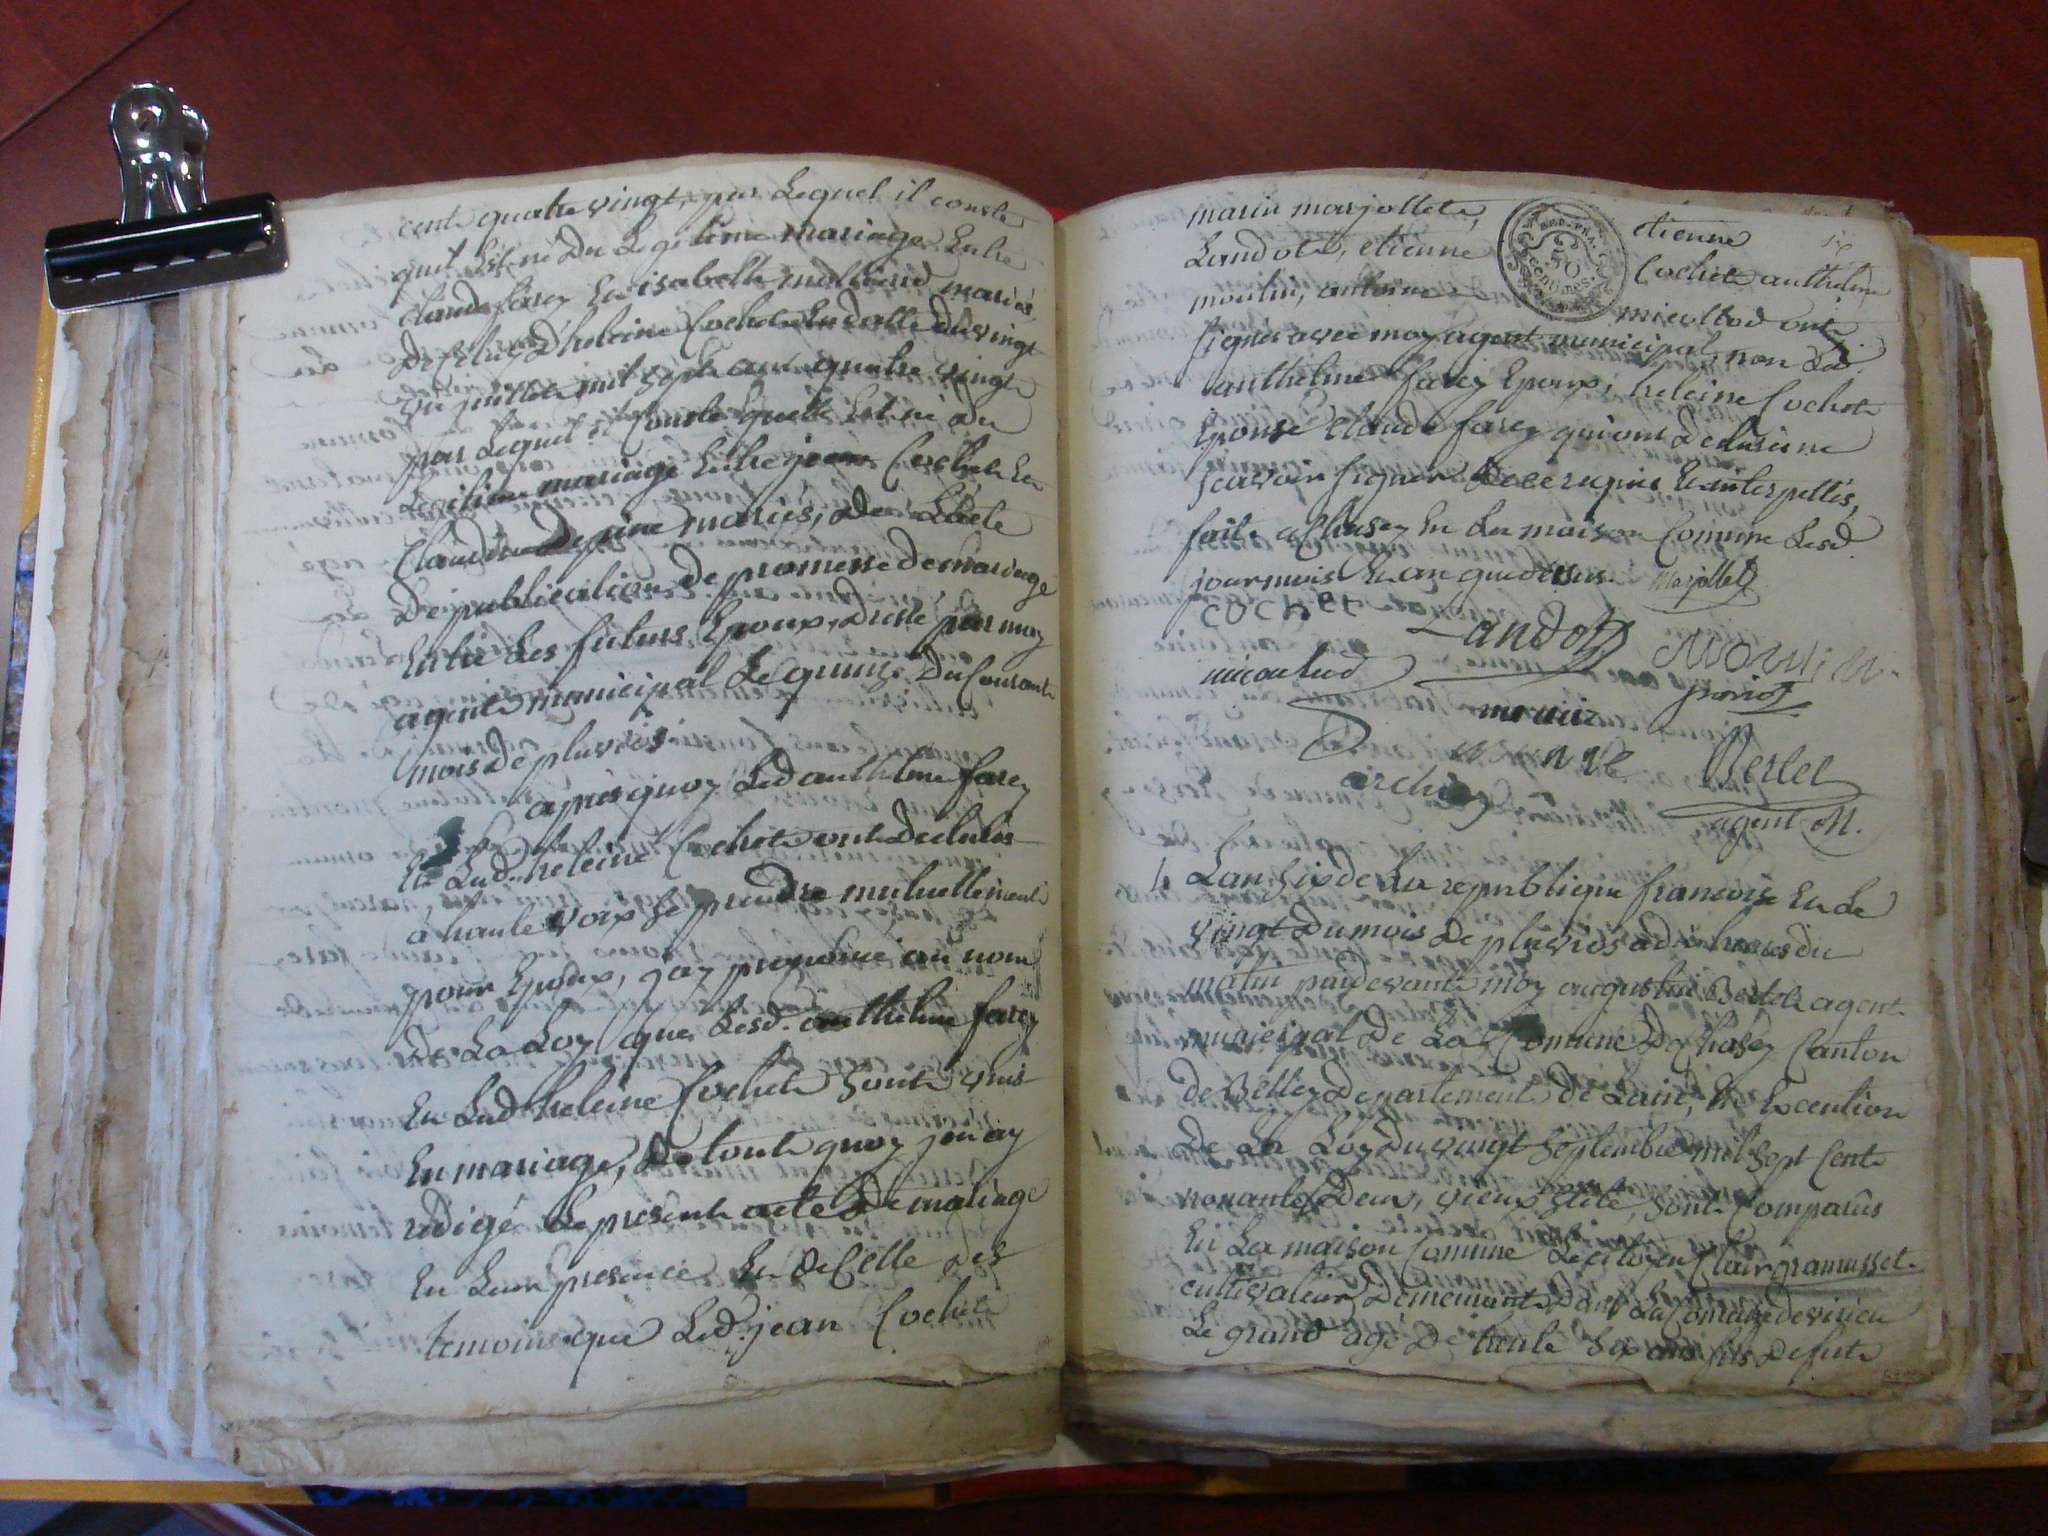 cent quatre vingt, par Lequel il conste
quil Est né Du Legitime mariage Entre
claude farey Et isabelle mariés,
De Celuy D'heleine Cochet En datte Du vingt
un juillet mil sept cent quatre vingt
par Lequel il Conste quelle Est né du
Legitime mariage Entre jean Cochet Et
Claudine Depine mariés, De L'acte
De publication De promesse De mariage
Entre Les futurs Epoux, Dressé par moy
agent municipal Le quinze Du Courant
mois De pluvios
apres quoy Led anthelme farey
Et Lad. heleine Cochet ont Declarés
à haute voix se prendre mutuellement
pour Epoux, j'ay prononcé au nom
De La Loy que Lesd. anthelme farey
Et Lad heleine Cochet sont unis
En mariage, De tout quoy jen ay
redigé Le present acte De mariage
En Leur presence Et de Celle des
temoins que Led. jean Cochet
marin marjollet,
Landot, etienne
moulin, antoine
REP. FRA.
50
centimes
etienne
Cochet anthelme
micollod ont
signés avec moy agent municipal, non Led.
anthelme farey Epoux, heleine Cochet
Epouse Claude farey qui ont Declarés ne
scavoir signer De ce requis Et interpellés,
fait a Chasey En La maison Comune Lesd.
jour mois Et an que dessus. Marjollet
COCHET
Landoz moulin
micollod
proriol
Berlet
agent M.
4 L'an six de La republique francoise Et Le
vingt Du mois De pluvios a dix heures du
matin pardevant moy augustin Berlet agent
municipal De La Comune De Chasey Canton
de Belley Departement De L'ain, En Execution
De La Loy Du vingt septembre mil sept Cent
nonante Deux, vieux stile, sont Comparus
En La maison Comune Le citoyen Clair gramusset
cultivateur Demeurant Dans La Comune de virieu
Le grand agé De trente six ans fils De fut